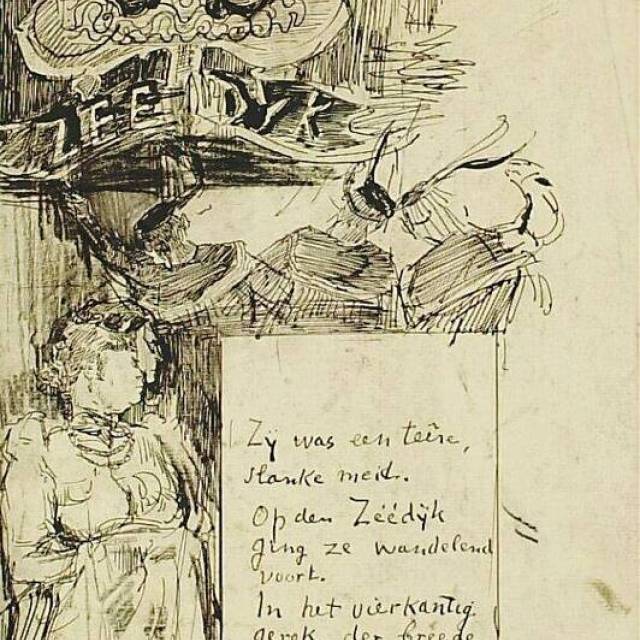 ZEEDYK
Zÿ was een teêre,
slanke meid.
Op den Zéédÿk
ging ze wandelend
voort.
In het vierkantig
gerok der breede